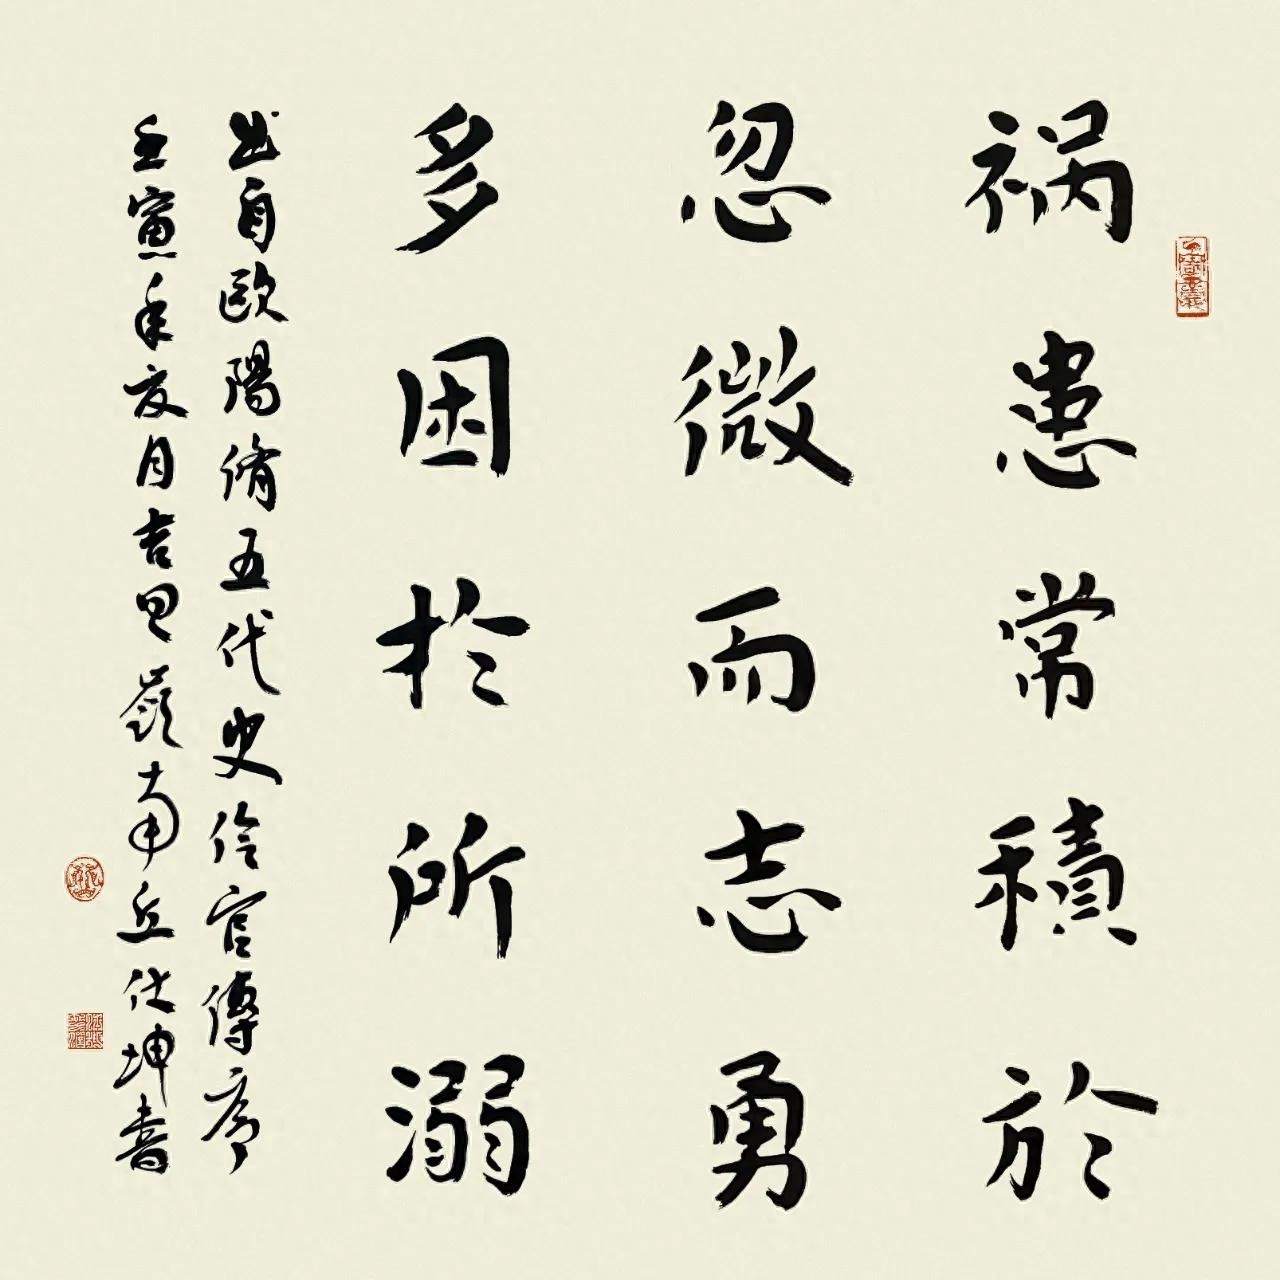 祸患常積於
忽微而志勇
多困於所溺
出自歐陽脩五代史伶官傳序
壬寅年夏月吉日嶺南丘仕坤書